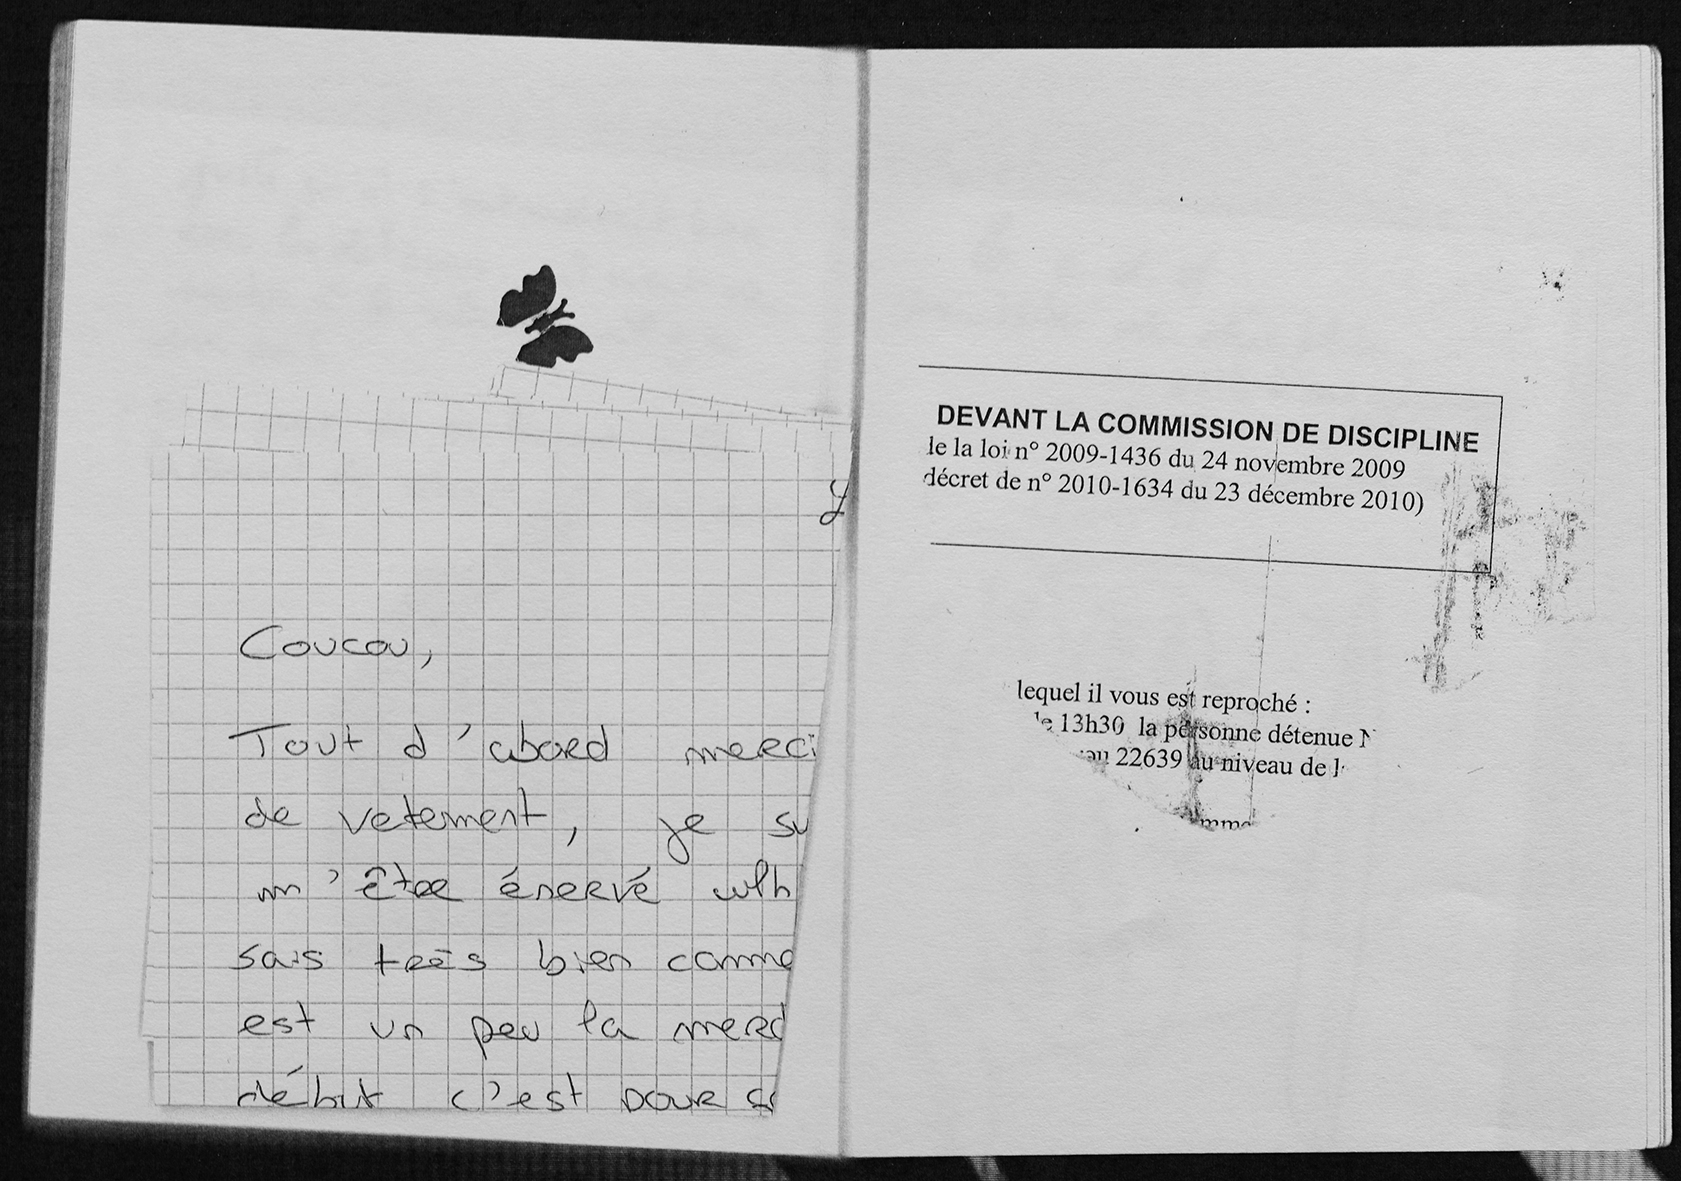 Coucou,
Tout d'abord merci
de vetement, je su
m'être énervé
sais très bien comme
est un peu la merd
début c'est pour
DEVANT LA COMMISSION DE DISCIPLINE
le la loi n° 2009-1436 du 24 novembre 2009
décret de n° 2010-1634 du 23 décembre 2010)
lequel il vous est reproché :
le 13h30 la personne détenue N
au 22639 au niveau de l
mme